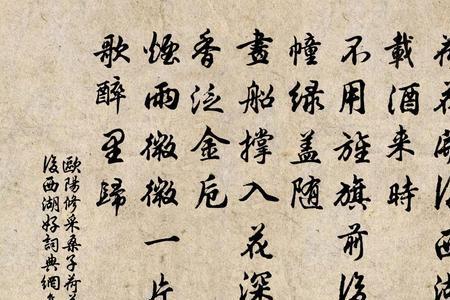 荷花開後西湖
載酒来時
不用旌旗前後
幢緑盖随
畫船撑入花深
香泛金卮
煙雨微微一片
歌醉里歸
歐陽修采桑子荷
後西湖好詞典網